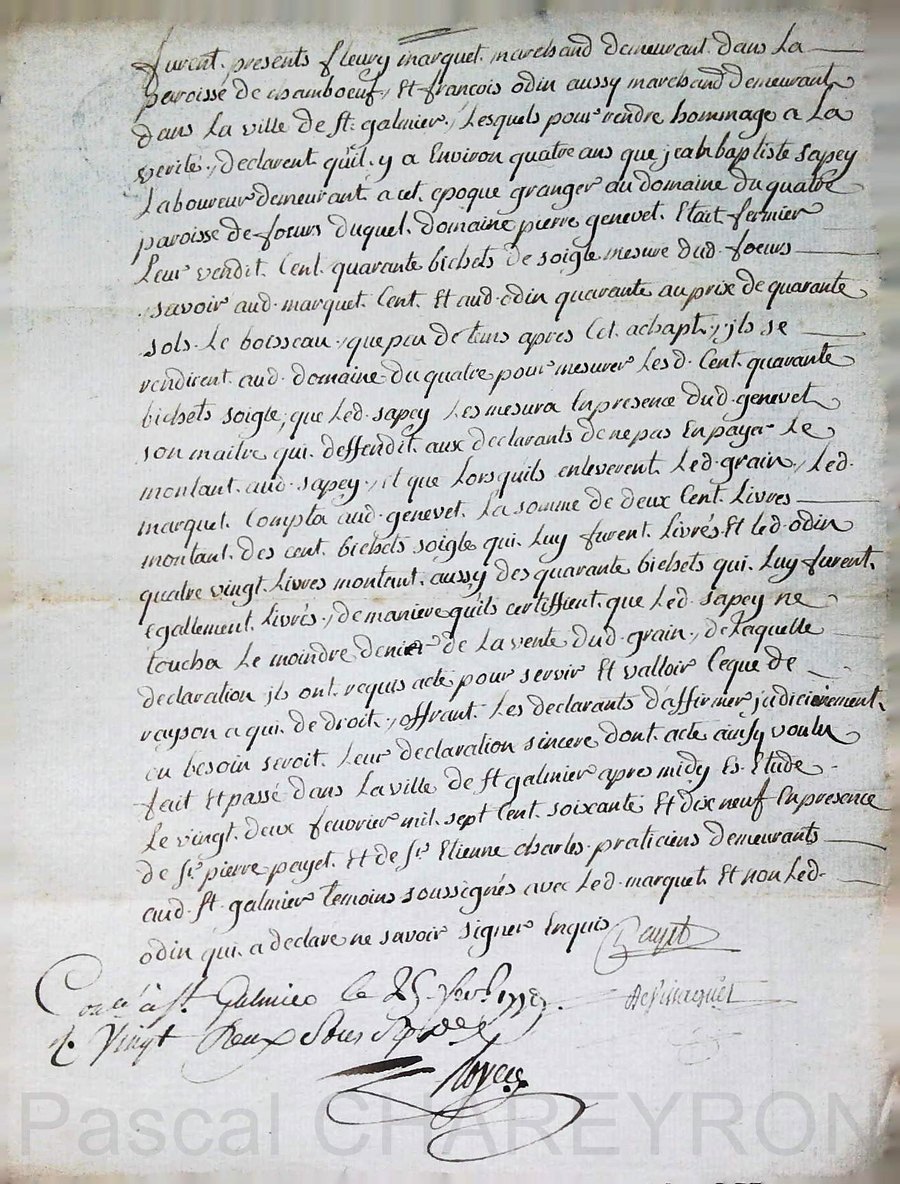 furent presents fleury marquet marchand demeurant dans La
paroisse de chamboeuf, Et francois odin aussy marchand demeurant
dans La ville de st. galmier, Lesquels pour rendre hommage a La
verité, declarent quil y a Environ quatre ans que jean baptiste sapey
Laboureur demeurant a cet epoque granger au domaine du quatre
paroisse de foeurs duquel domaine pierre genevet Etait fermier
Leur vendit Cent quarante bichets de soigle mesure dud. foeurs
savoir aud. marquet Cent Et aud. odin quarante au prix de quarante
sols Le boisseau, que peu de tems apres Cet achapt, jls se
rendirent aud. domaine du quatre pour mesurer Lesd. Cent quarante
bichets soigle, que Led. sapey Les mesura En presence dud. genevet
son maitre qui deffendit aux declarants de ne pas En payer Le
montant aud. sapey, et que Lorsquils enleverent Led. grain, Led.
marquet Compta aud. genevet La somme de deux Cent Livres
montant des cent bichets soigle qui Luy furent Livrés Et led. odin
quatre vingt Livres montant aussy des quarante bichets qui Luy furent
egallement Livrés, de maniere quils certiffient que Led. sapey ne
toucha Le moindre denier de La vente dud. grain, de Laquelle
declaration jls ont requis acte pour servir Et valloir Ceque de
rayson a qui de droit, offrant Les declarants d'affirmer judiciairement
ou besoin seroit Leur declaration sincere dont acte ainsy voulu
fait Et passé dans La ville de st galmier apres midy Es Etude
Le vingt deux feuvrier mil sept Cent soixante Et dix neuf En presence
de sr. pierre payet Et de sr. Etienne charles praticiens demeurants
aud. st. galmier temoins soussignés avec Led. marquet Et non Led.
odin qui a declare ne savoir signer Enquis
Payet
à st. Galmier le 25
Vingt Deux Sous
Pascal CHAREYRON